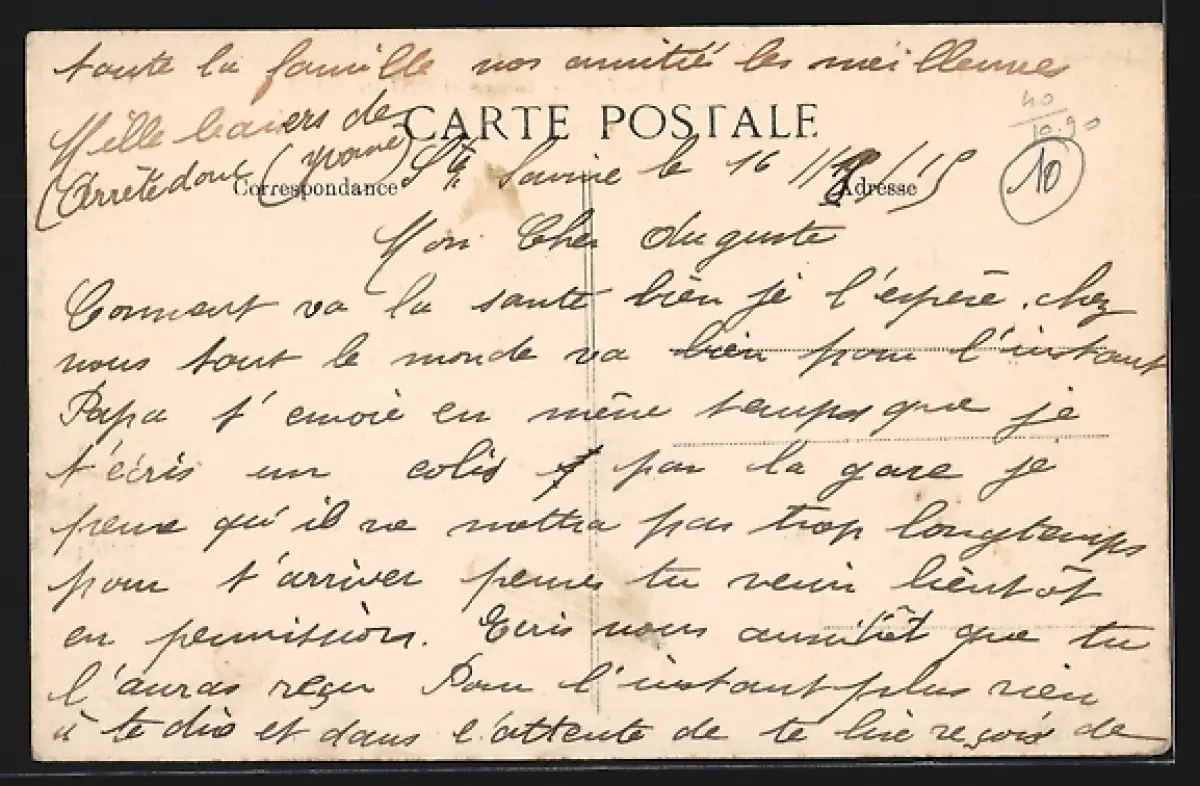 toute la famille nos amitié les meilleures
CARTE POSTALE
40
10.90
Mille baisers de
(Arrêtedout (yvonne)
Correspondance
Ste Savine le 16 /15
Adresse
10
Mon Cher Auguste
Comment va la santé bien je l'espère. chez
nous tout le monde va bien pour l'instant
Papa t'envoie en même temps que je
t'écris un colis par la gare je
pense qu'il ne mettra pas trop longtemps
pour t'arriver penses tu venir bientôt
en permission. Ecris nous aussitôt que tu
l'auras reçu Pour l'instant plus rien
à te dire et dans l'attente de te lire reçois de